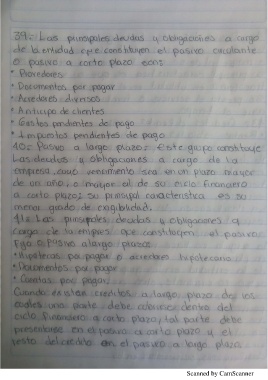 39.- Las principales deudas y obligaciones a cargo
de la entidad que constituyen el pasivo circulante
o pasivo a corto plazo son:
* Proveedores
* Documentos por pagar
* Acreedores diversos
* Anticipo de clientes
* Gastos pendientes de pago
* Impuestos pendientes de pago
40.- Pasivo a largo plazo: Este grupo constituye
Las deudas y obligaciones a cargo de la
empresa, cuyo vencimiento sea en un plazo mayor
de un año, o mayor al de su ciclo financiero
a corto plazo; su principal característica es su
menor grado de exigibilidad.
41.- Las principales deudas y obligaciones a
cargo de la empresa que constituyen el pasivo
Fijo o Pasivo a largo plazo
* Hipotecas por pagar o acreedores hipotecario
* Documentos por pagar
* Cuentas por pagar
Cuando existen creditos a largo plazo de los
cuales una parte debe cubrirse dentro del
ciclo financiero a corto plazo, tal parte debe
presentarse en el pasivo a corto plazo y el
resto del credito en el pasivo a largo plazo.
Scanned by CamScanner